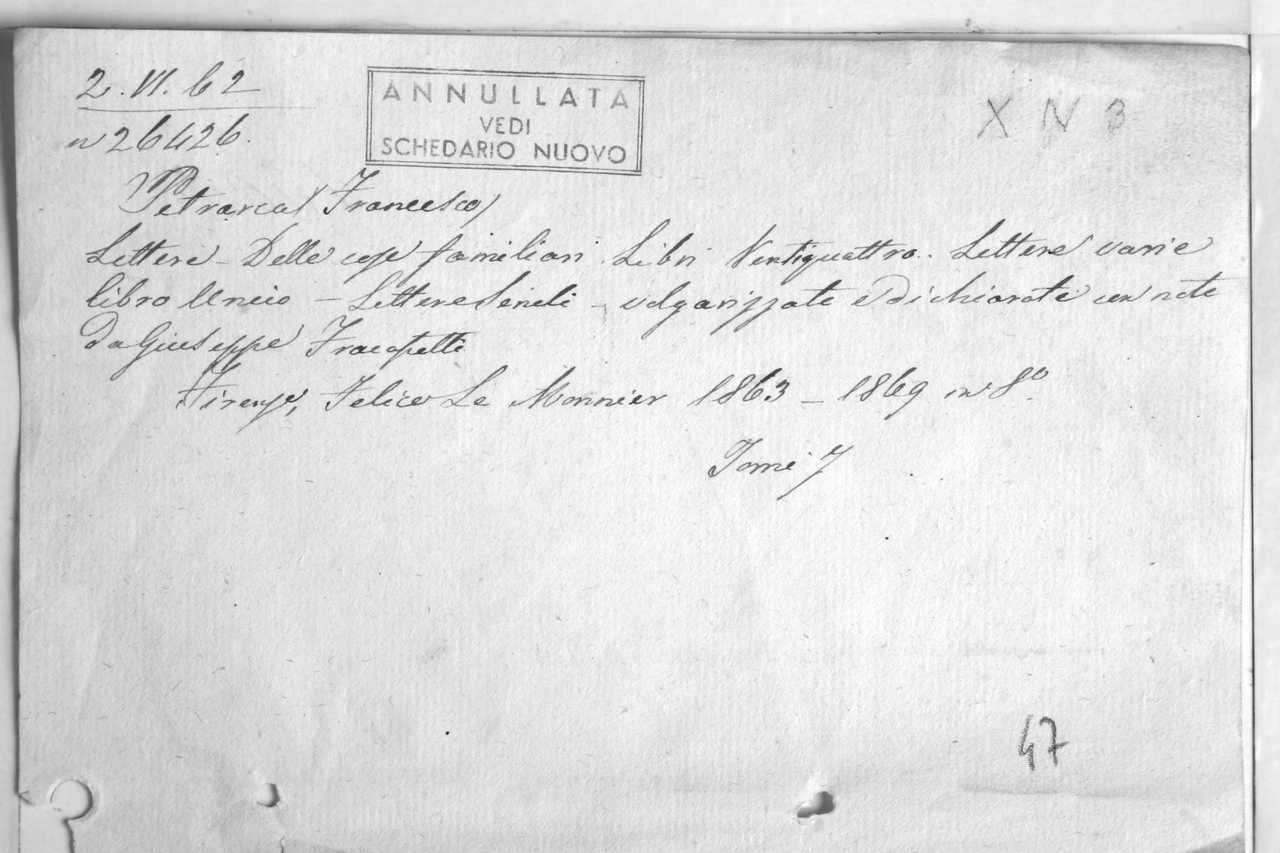 2.VI.62
n 26426.
ANNULLATA
VEDI
SCHEDARIO NUOVO
X N 3
Petrarca (Francesco)
Lettere - Delle cose familiari. Libri Ventiquattro. Lettere varie
libro Unico - Lettere Senili - volgarizzate e dichiarate con note
da Giuseppe Fracassetti
Firenze, Felice Le Monnier 1863 - 1869 in 8°.
Tomi 7
47